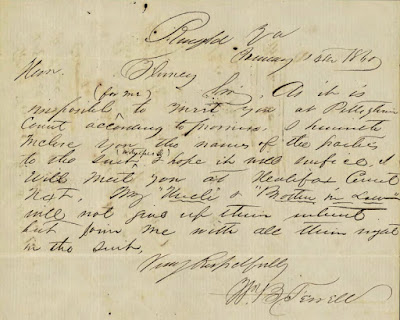 Ringgold Va
January 15th 1860
Hon. Flurney
(for me) Sir, As it is
impossible to meet you at Pittsylvania
Court according to promise. I herewith
inclose you the names of the parties
to the suit, I hope it will suffice, I
will meet you at Healefax Court
Next, My "Uncle" & "Mother in Law"
will not give up their interest
but join me with all their right
in the suit.
Very Respectfully
Wm B. Terrell